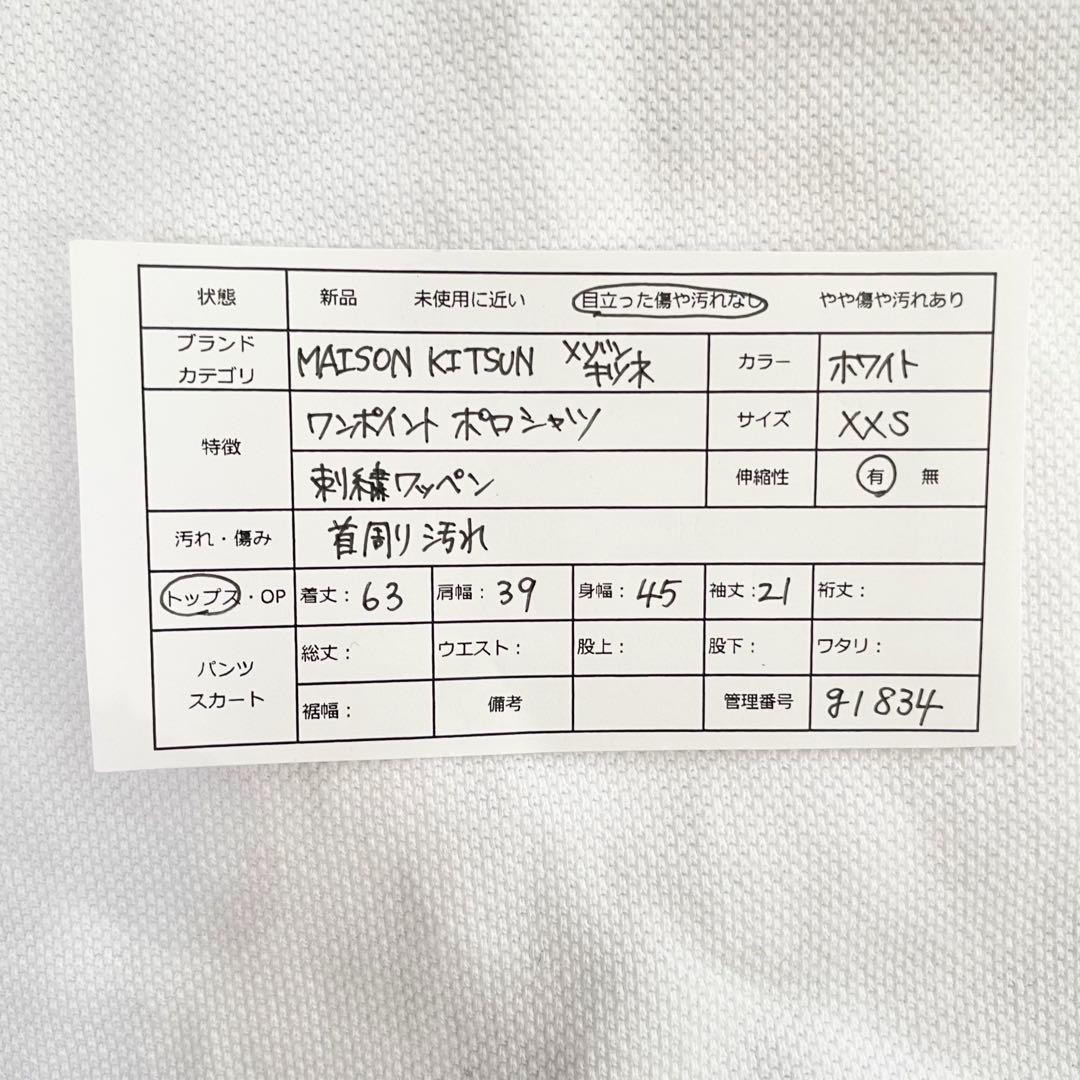 状態 新品 未使用に近い 目立った傷や汚れなし やや傷や汚れあり
ブランド
カテゴリ MAISON KITSUN メゾン キツネ カラー ホワイト
特徴 ワンポイント ポロシャツ サイズ XXS
刺繍ワッペン 伸縮性 有 無
汚れ・傷み 首周り汚れ
トップス・OP 着丈：63 肩幅：39 身幅：45 袖丈：21 裄丈：
パンツ
スカート
総丈： ウエスト： 股上： 股下： ワタリ：
裾幅： 備考 管理番号 g1834